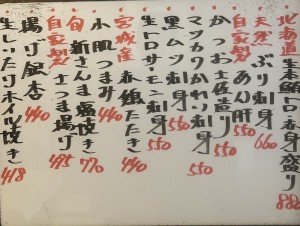 北海道 生本鮪トロ刺身盛り 880
天然 ぶり刺身 660
自家製 あん肝 550
かつお土佐造り 550
マツカワかれい刺身 550
黒ムツ刺身 550
生トロサーモン刺身 550
宮城産 赤鶏たたき 440
小肌つまみ 440
旬 新さんま塩焼き 770
自家製 さつま揚げ 495
揚げ銀杏 440
生しいたけホイル焼き 418